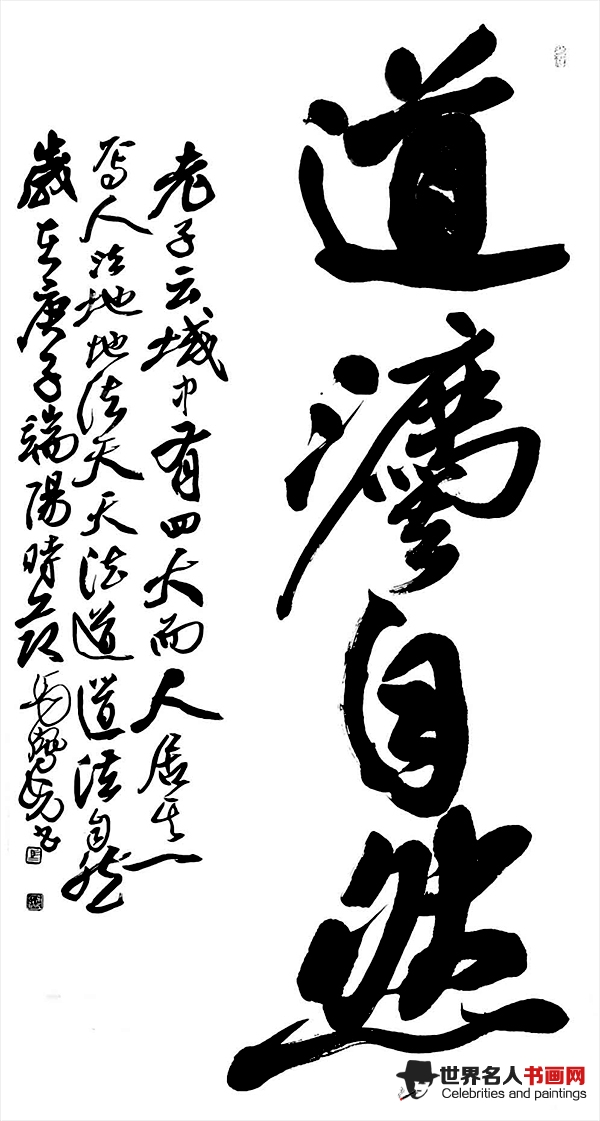 道灋自然
老子云域中有四大而人居其一
焉人法地地法天天法道道法自然
歲在庚子端陽時節馬書
世界名人书画网
Celebrities and paintings